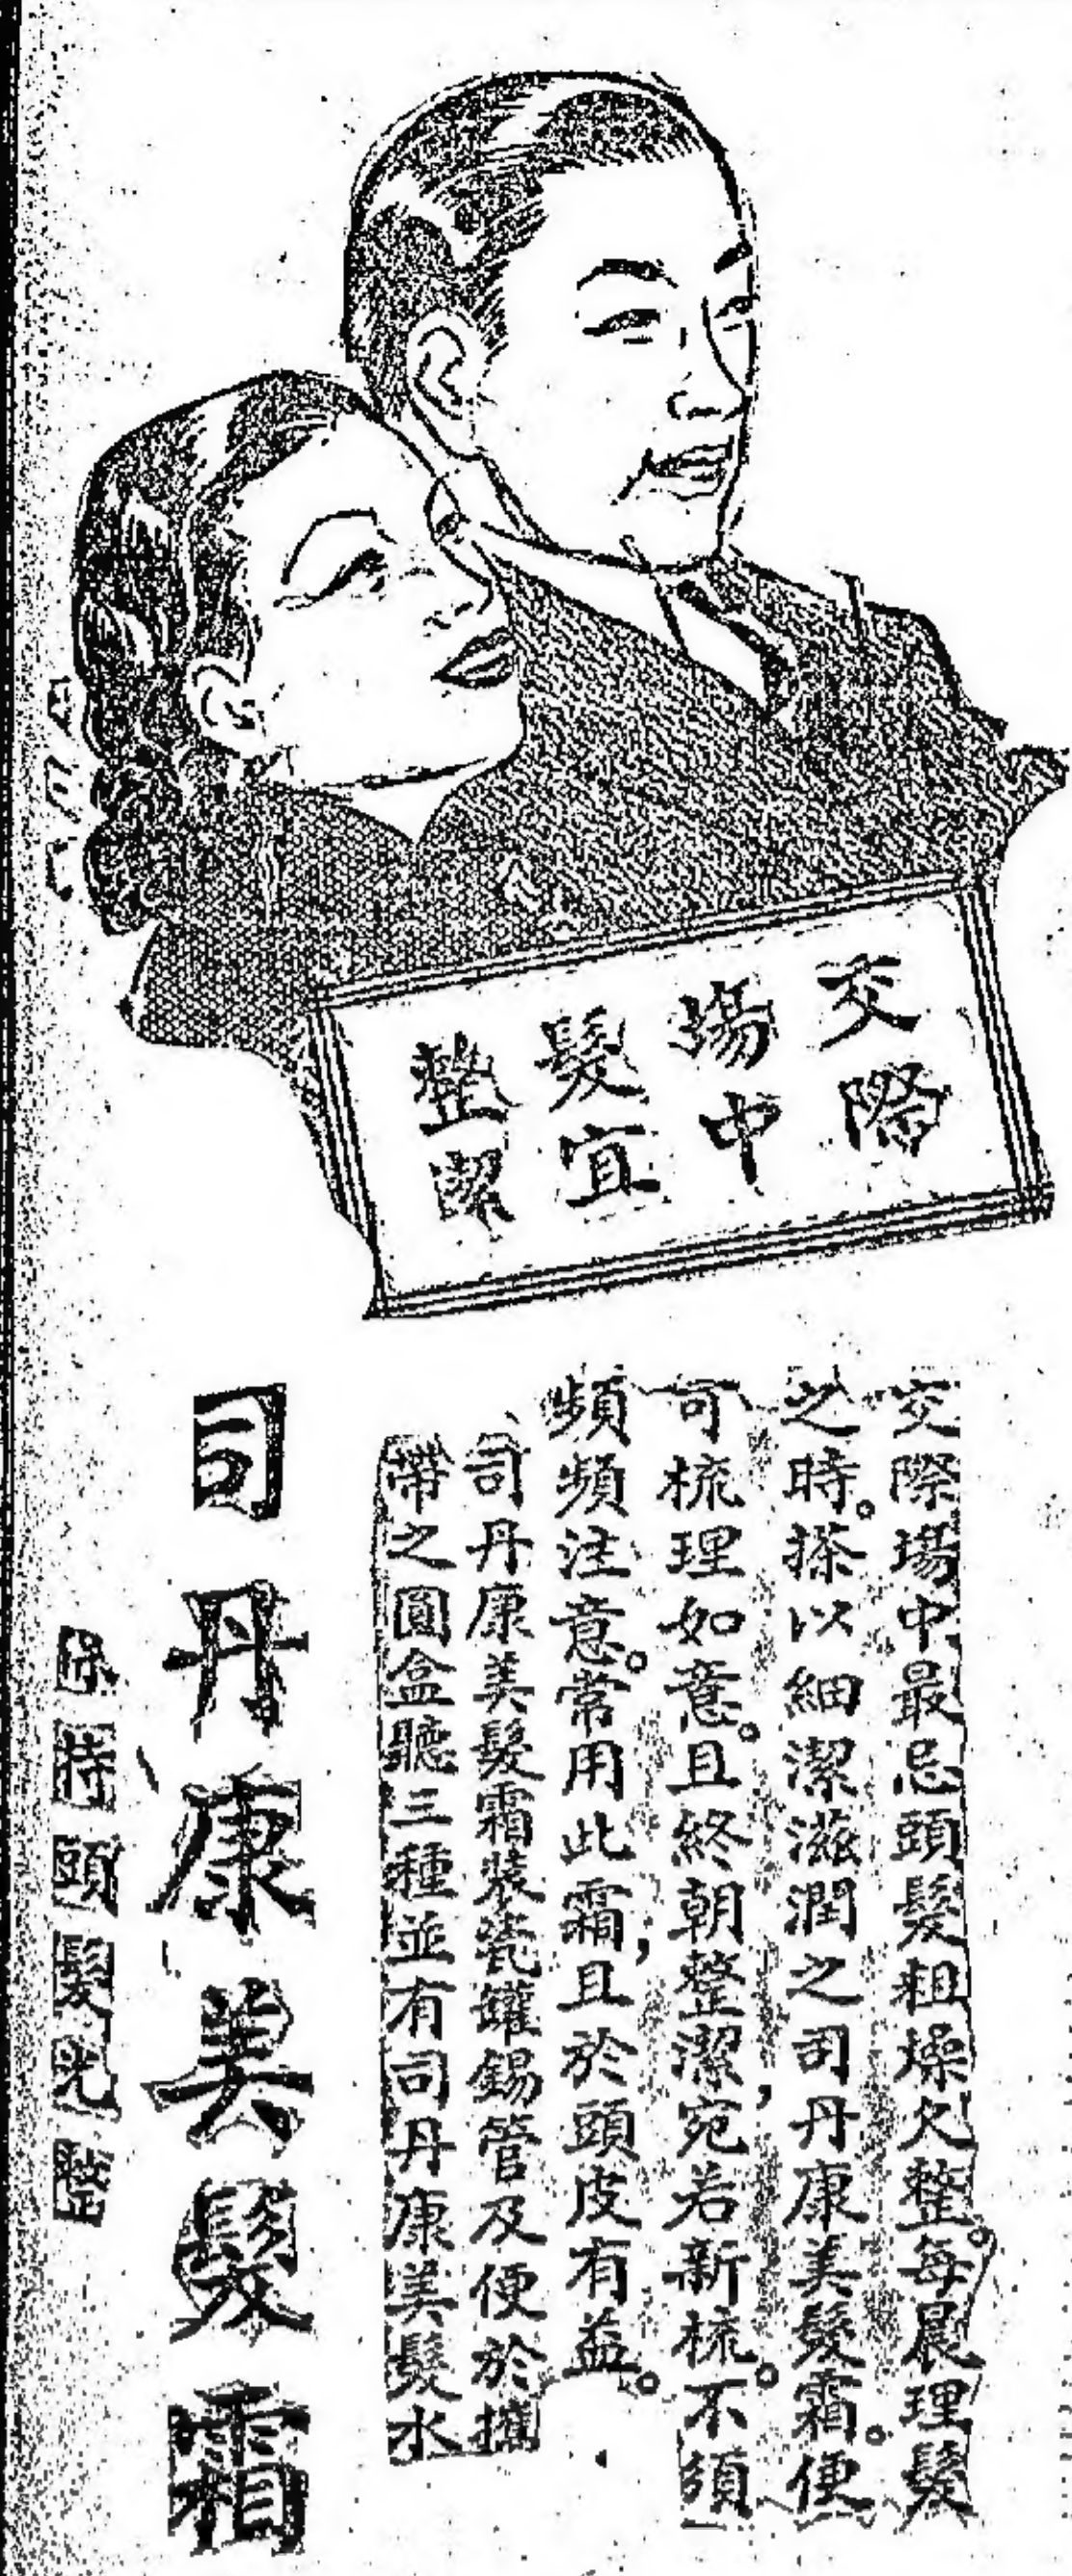 交際
場中
髮宜
整潔
交際場中最忌頭髮粗燥欠整。每晨理髮
之時。搽以細潔滋潤之司丹康美髮霜。便
可梳理如意。且終朝整潔，宛若新梳。不須
頻頻注意。常用此霜，且於頭皮有益。
司丹康美髮霜裝瓷罐錫管及便於攜
帶之圓盒聽三種並有司丹康美髮水
司丹康美髮霜
保持頭髮光整